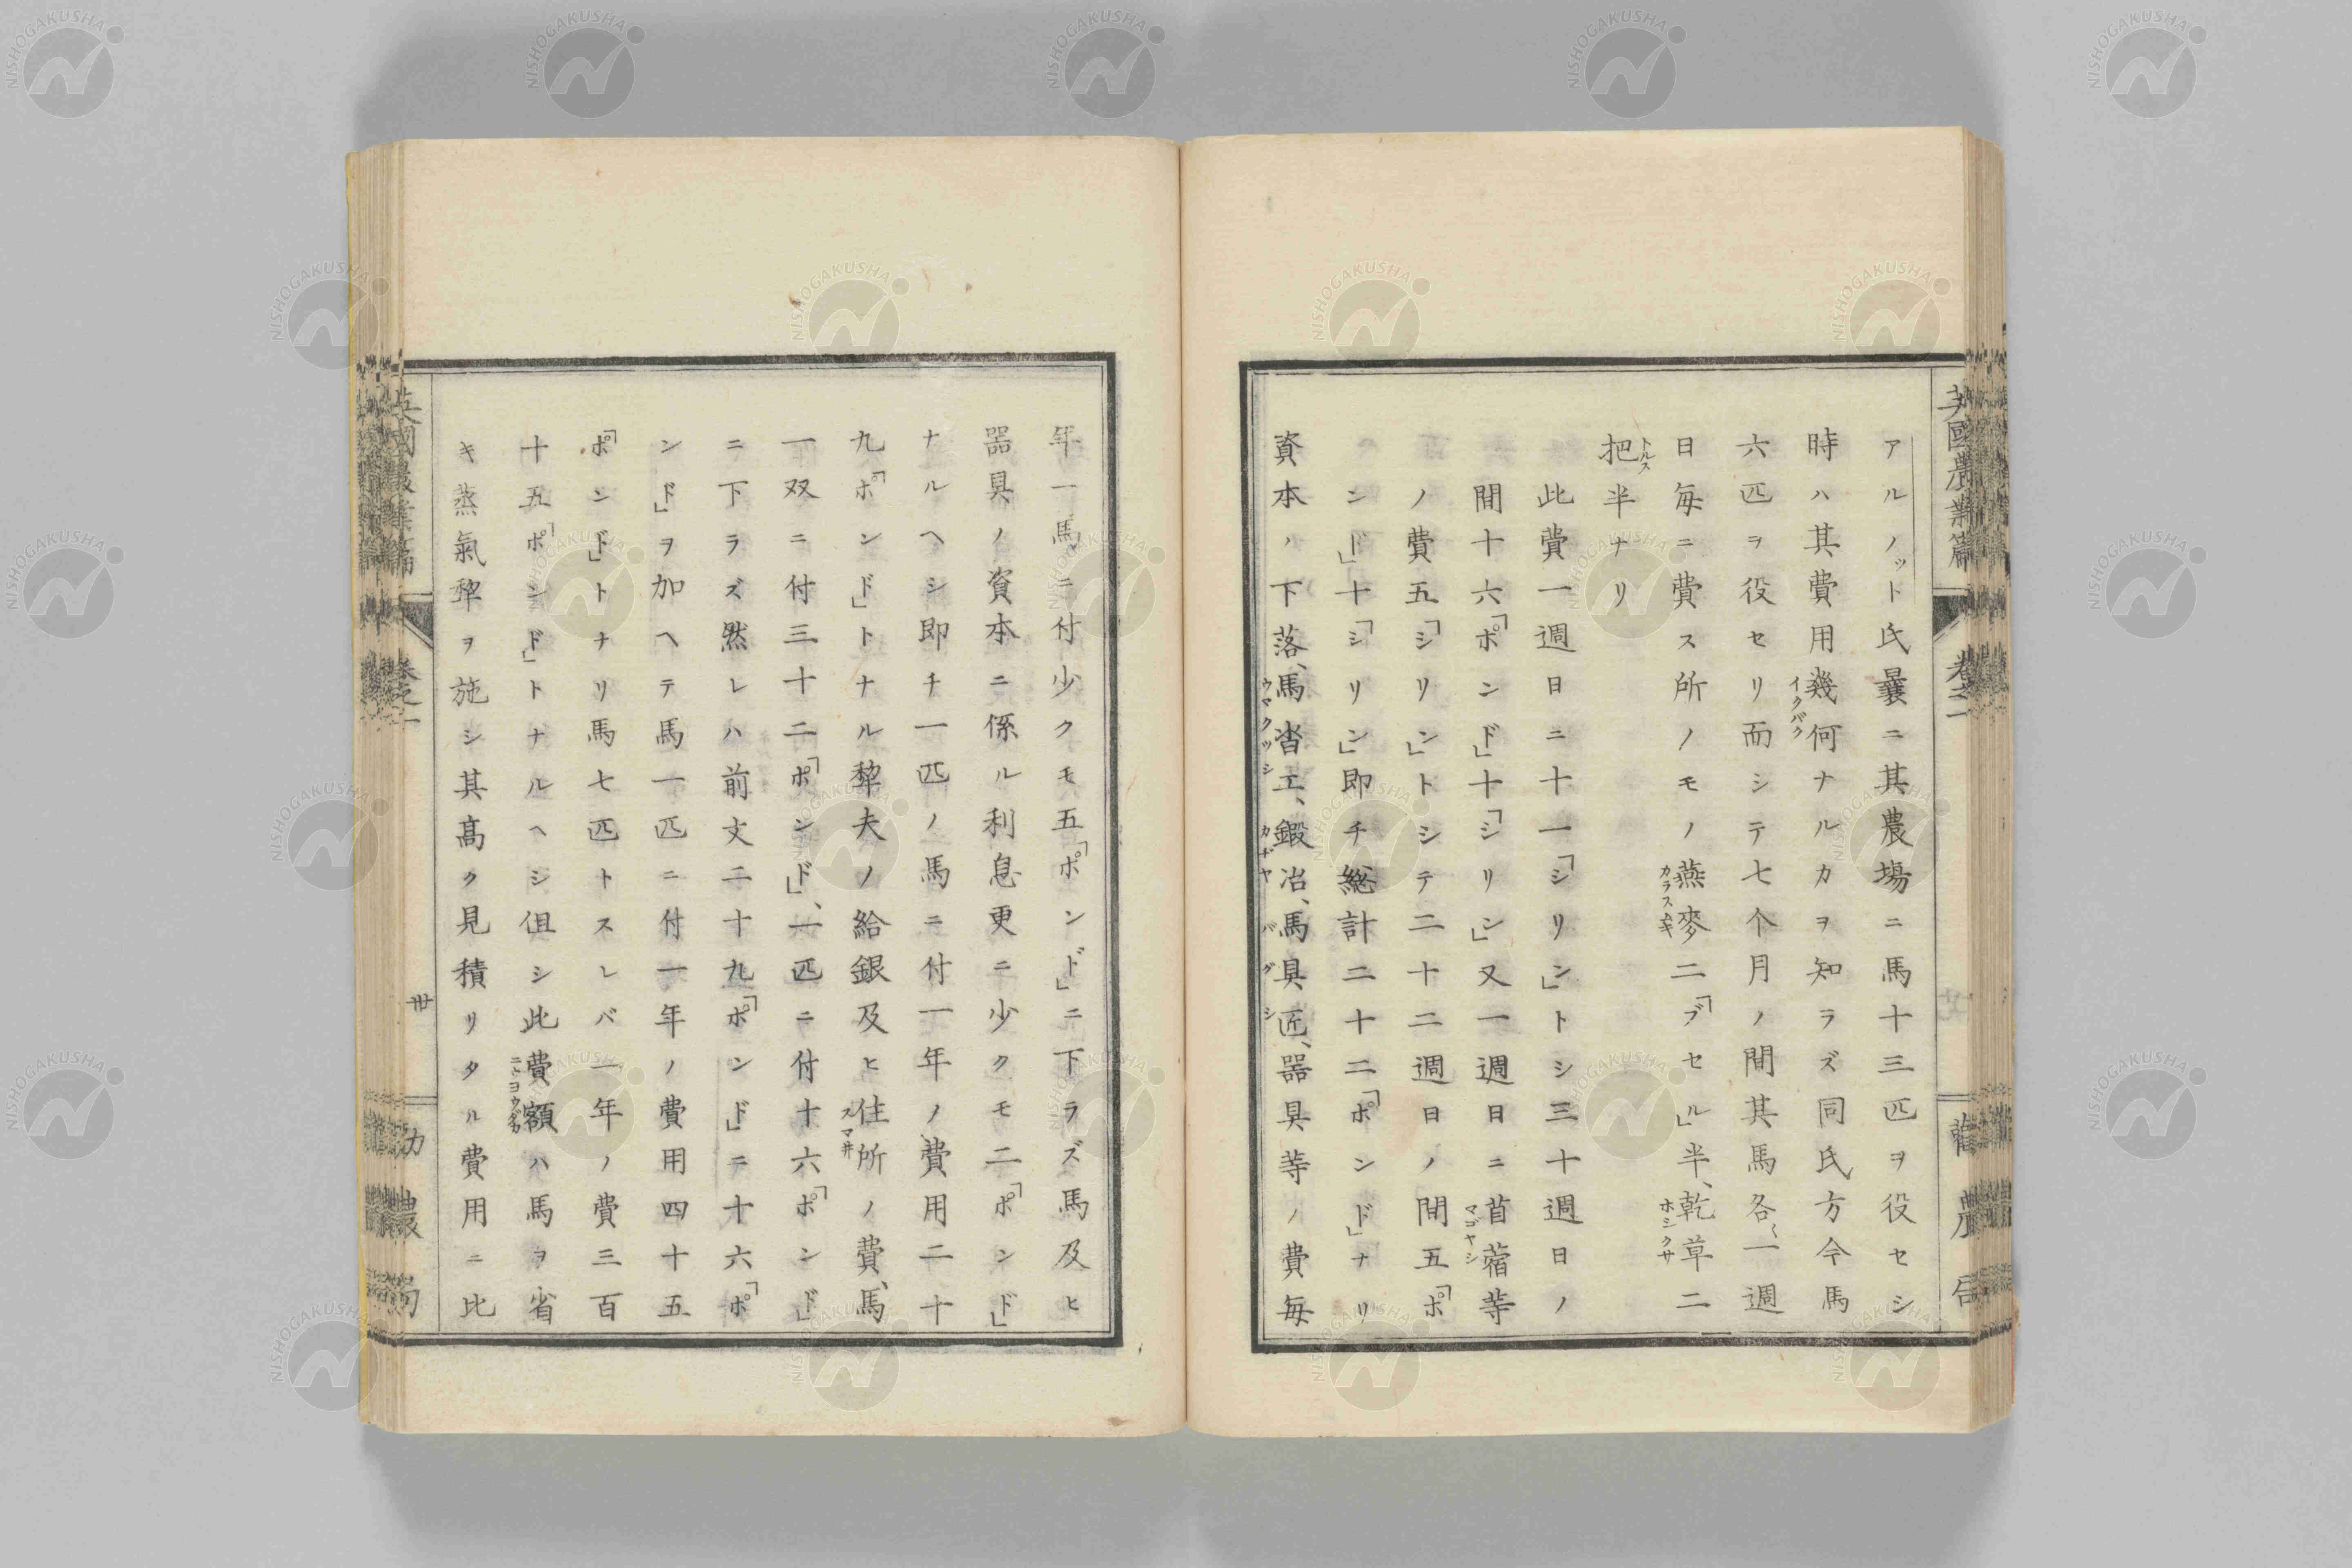 英國農業篇 卷之二 勸農局
アルノット氏曩ニ其農場ニ馬十三匹ヲ役セシ
時ハ其費用幾何ナルカヲ知ラズ同氏方今馬
イクバク
六匹ヲ役セリ而シテ七个月ノ間其馬各、一週
日每ニ費ス所ノモノ燕麥二「ブセル」半、乾草二
カラスムギ
ホシクサ
把半ナリ
トルス
此費一週日ニ十一「シリン」トシ三十週日ノ
間十六「ポンド」十「シリン」又一週日ニ苜蓿等
マゴヤシ
ノ費五「シリン」トシテ二十二週日ノ間五「ポ
ンド」十「シリン」即チ総計二十二「ポンド」ナリ
資本ノ下落、馬沓工、鍛冶、馬具匠、器具等ノ費每
ウマクツシ
カヂヤ
バグシ
年一馬ニ付少クモ五「ポンド」ニ下ラズ馬及ヒ
器具ノ資本ニ係ル利息更ニ少クモ二「ポンド」
ナルヘシ即チ一匹ノ馬ニ付一年ノ費用二十
九「ポンド」トナル犂夫ノ給銀及ヒ住所ノ費、馬
スマ井
一双ニ付三十二「ポンド」、一匹ニ付十六「ポンド」
ニ下ラズ然レハ前文二十九「ポンド」ニ十六「ポ
ンド」ヲ加ヘテ馬一匹ニ付一年ノ費用四十五
「ポンド」トナリ馬七匹トスレバ一年ノ費三百
十五「ポンド」トナルヘシ但シ此費額ハ馬ヲ省
ニウヨウダカ
キ蒸氣犂ヲ施シ其高ク見積リタル費用ニ比
英國農業篇 卷之二 卅 勸農局